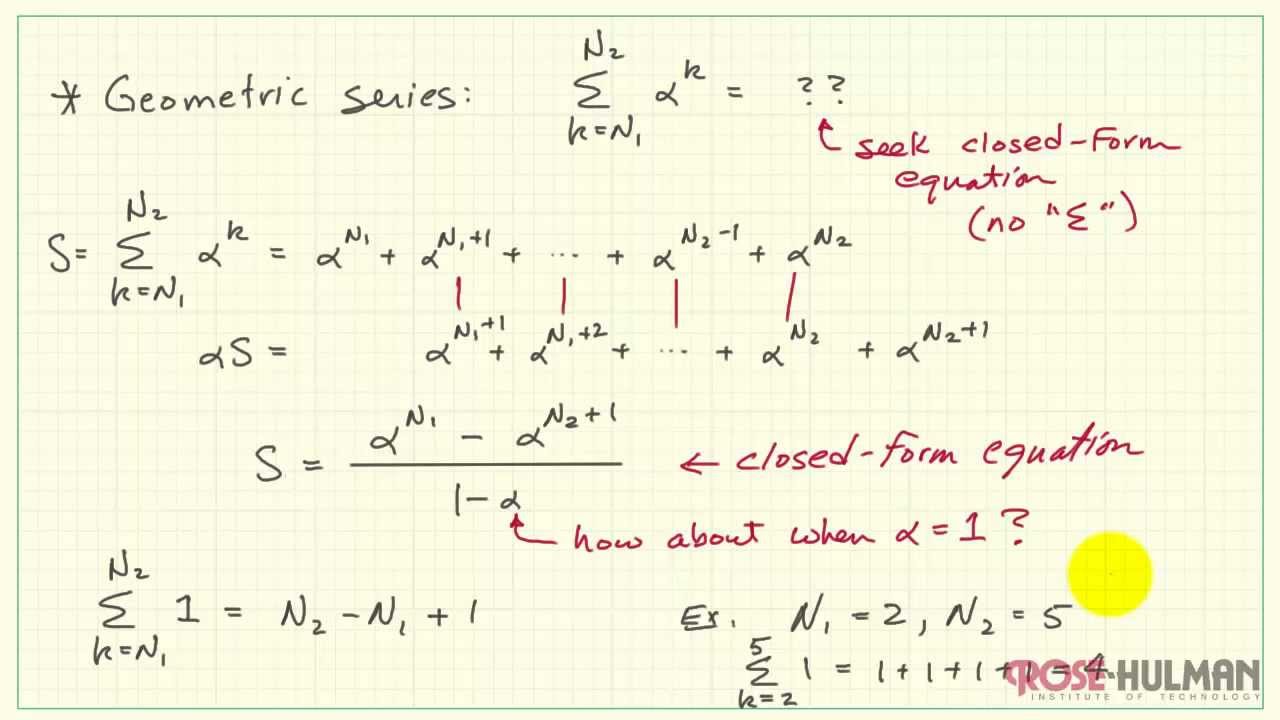 * Geometric series: ∑_{k=N₁}^{N₂} α^k = ??
seek closed-form
equation
(no "Σ")
S = ∑_{k=N₁}^{N₂} α^k = α^{N₁} + α^{N₁+1} + ... + α^{N₂-1} + α^{N₂}
αS = α^{N₁+1} + α^{N₁+2} + ... + α^{N₂} + α^{N₂+1}
S = (α^{N₁} - α^{N₂+1}) / (1-α) ← closed-form equation
how about when α = 1 ?
∑_{k=N₁}^{N₂} 1 = N₂ - N₁ + 1
Ex. N₁ = 2, N₂ = 5
∑_{k=2}^{5} 1 = 1 + 1 + 1 + 1 = 4
ROSE-HULMAN
INSTITUTE OF TECHNOLOGY